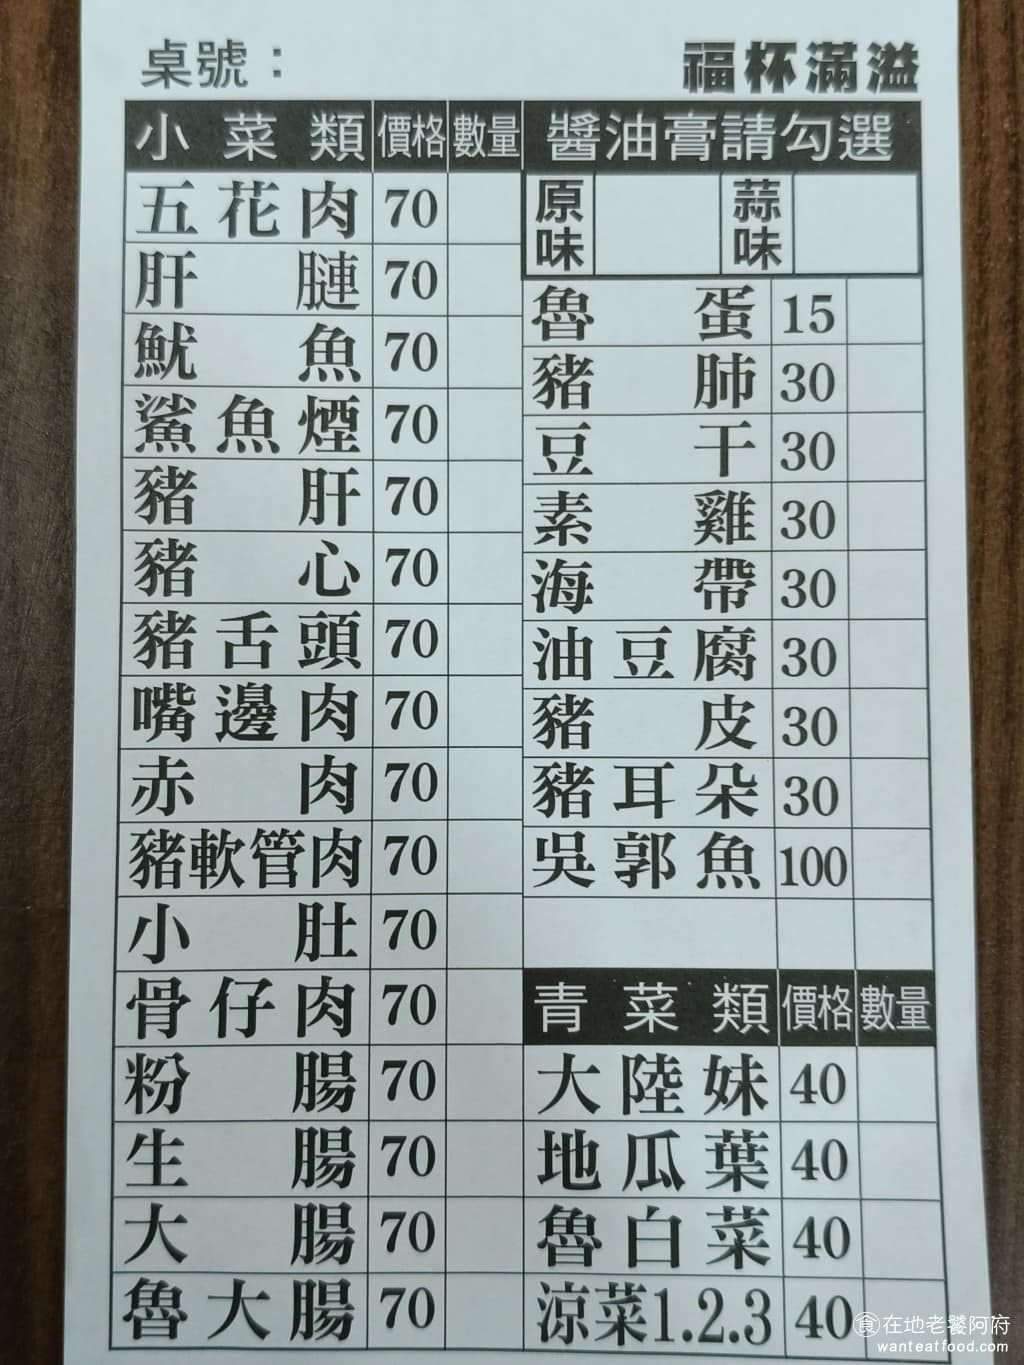 桌號：
福杯滿溢
小菜類 價格 數量
五花肉 70
肝腱 70
魷魚 70
鯊魚煙 70
豬肝 70
豬心 70
豬舌頭 70
嘴邊肉 70
赤肉 70
豬軟管肉 70
小肚 70
骨仔肉 70
粉腸 70
生腸 70
大腸 70
魯大腸 70
醬油膏請勾選
原味 蒜味
魯蛋 15
豬肺 30
豆干 30
素雞 30
海帶 30
油豆腐 30
豬皮 30
豬耳朵 30
吳郭魚 100
青菜類 價格 數量
大陸妹 40
地瓜葉 40
魯白菜 40
涼菜1.2.3 40
食在地老饕阿府
wanteatfood.com